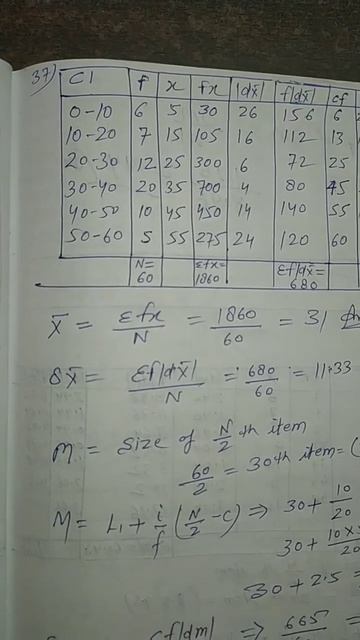 37) CI f x fx |dx̄| f|dx̄| cf
0-10 6 5 30 26 156 6
10-20 7 15 105 16 112 13
20-30 12 25 300 6 72 25
30-40 20 35 700 4 80 45
40-50 10 45 450 14 140 55
50-60 5 55 275 24 120 60
N=60 Σfx=1860 Σf|dx̄|=680
x̄ = Σfx/N = 1860/60 = 31
δx̄ = Σf|dx̄|/N = 680/60 = 11.33
M = Size of N/2 th item
60/2 = 30th item = (
M = L₁ + i/f (N/2 - C) ⇒ 30 + 10/20
30 + 10×5/20
30 + 2.5 =
f|dm| ⇒ 665